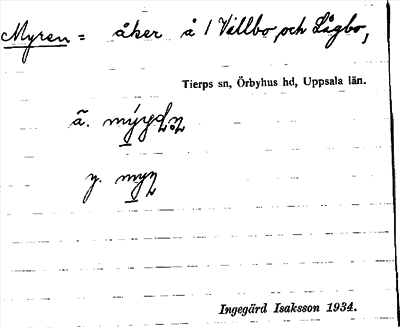 Myren = åker å 1 Vållbo, och Lågbo,
Tierps sn, Örbyhus hd, Uppsala län.
ä.
y.
Ingegärd Isaksson 1934.